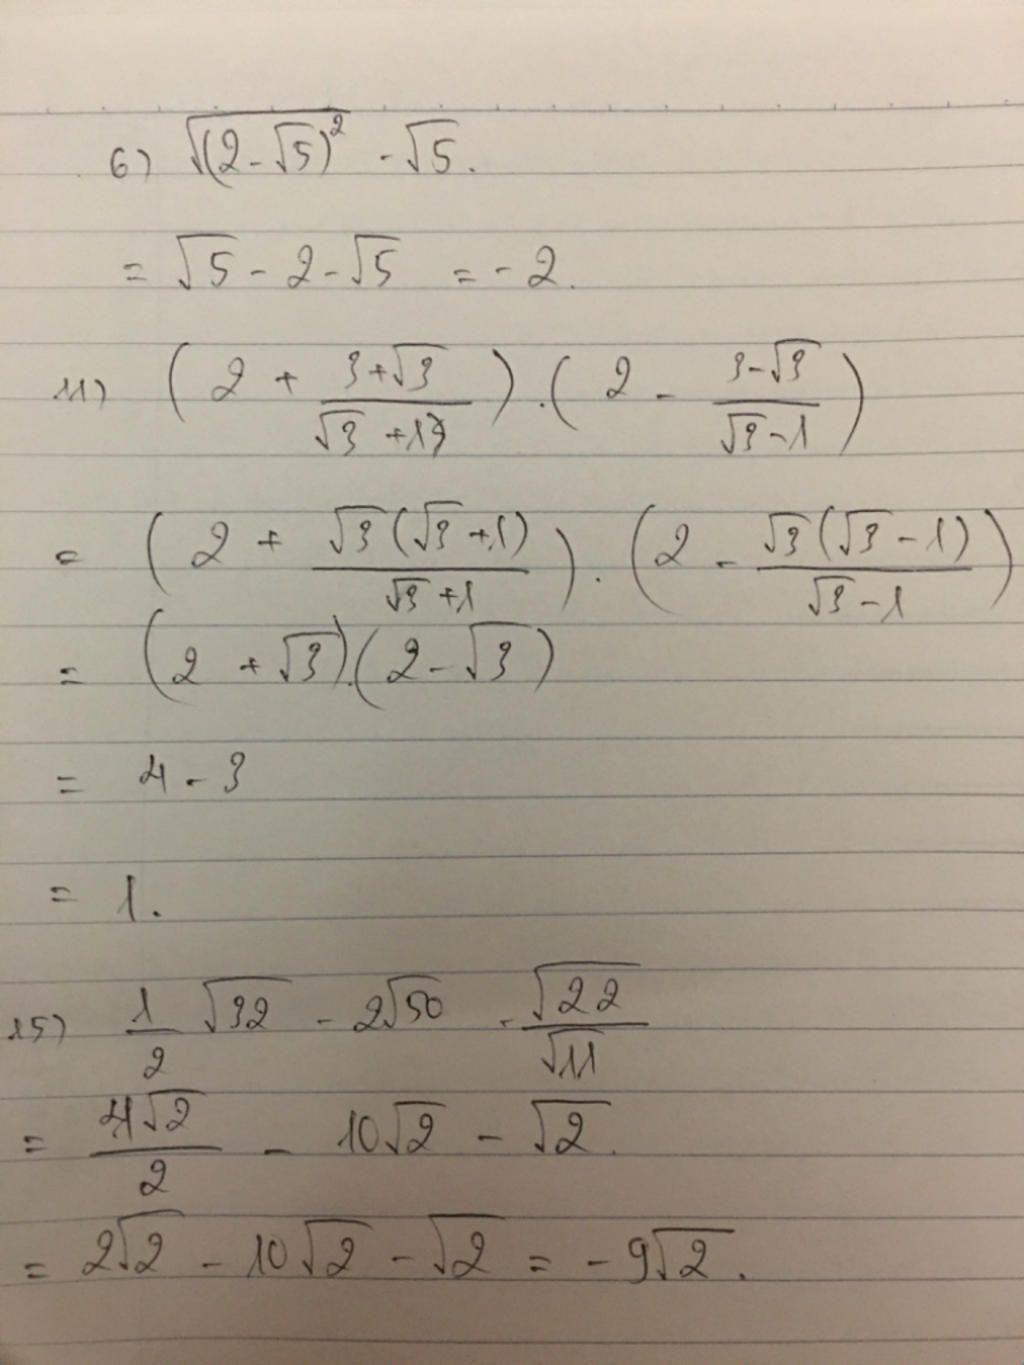 6) √(2-√5)² - √5.
= √5 - 2 - √5 = -2.
11) (2 + (3+√3)/(√3+1)) . (2 - (3-√3)/(√3-1))
= (2 + √3(√3+1)/(√3+1)) . (2 - √3(√3-1)/(√3-1))
= (2 + √3).(2 - √3)
= 4 - 3
= 1.
15) 1/2 √32 - 2√50 - √22/√11
= 4√2/2 - 10√2 - √2.
= 2√2 - 10√2 - √2 = -9√2.